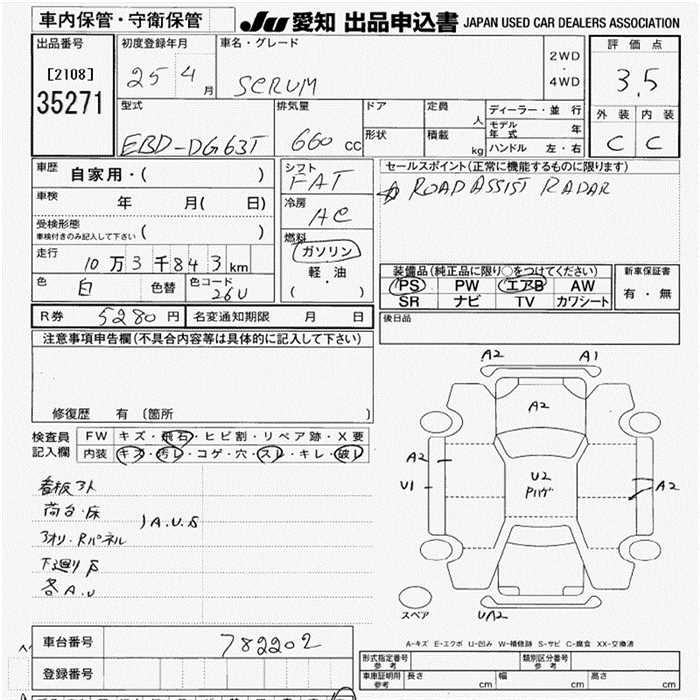 車内保管・守衛保管
JU 愛知 出品申込書 JAPAN USED CAR DEALERS ASSOCIATION
出品番号
[2108]
35271
初度登録年月
25 4 月
車名・グレード
SCRUM
2WD
・
4WD
評価点
3.5
外装 内装
C C
型式
EBD-DG63T
排気量
660 cc
ドア
形状
定員
人
積載
kg
ディーラー・並 行
モデル年式 年
ハンドル 左・右
車歴
自家用・( )
車検
年 月( 日)
受検形態
車検付きのみ記入して下さい ( )
走行
10 万 3 千 8 4 3 km
色 白 色替 色コード 26U
シフト
FAT
冷房
AC
燃料
ガソリン
軽・油
( )
セールスポイント(正常に機能するものに限ります)
ROAD ASSIST RADAR
装備品(純正品に限り○をつけてください)
PS PW エアB AW
SR ナビ TV カワシート
新車保証書
有・無
R券 5280 円 名変通知期限 月 日
後日品
注意事項申告欄(不具合内容等は具体的に記入して下さい)
修復歴 有 〔箇所 〕
検査員記入欄
FW キズ・飛石・ヒビ割・リペア跡・X要
内装 キズ・汚レ・コゲ・穴・スレ・キレ・破レ
看板アト
荷台・床
アオリ・Rパネル
A.U.S
下廻りS
各A.U
A2 A1
A2
A2
U1
U2
Pハゲ
A2
UA2
スペア
A-キズ E-エクボ U-凹み W-補修跡 S-サビ C-腐食 XX-交換済
車台番号 782202
登録番号
形式指定番号 参考
類別区分番号 参考
車庫証明用 参考
長さ cm 幅 cm 高さ cm